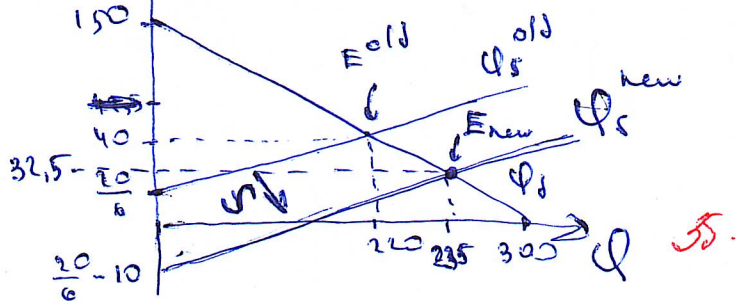 150
E old
φs old
φs new
40
E new
32,5
20/6
φd
220
235
300
φ
5б.
20/6 - 10